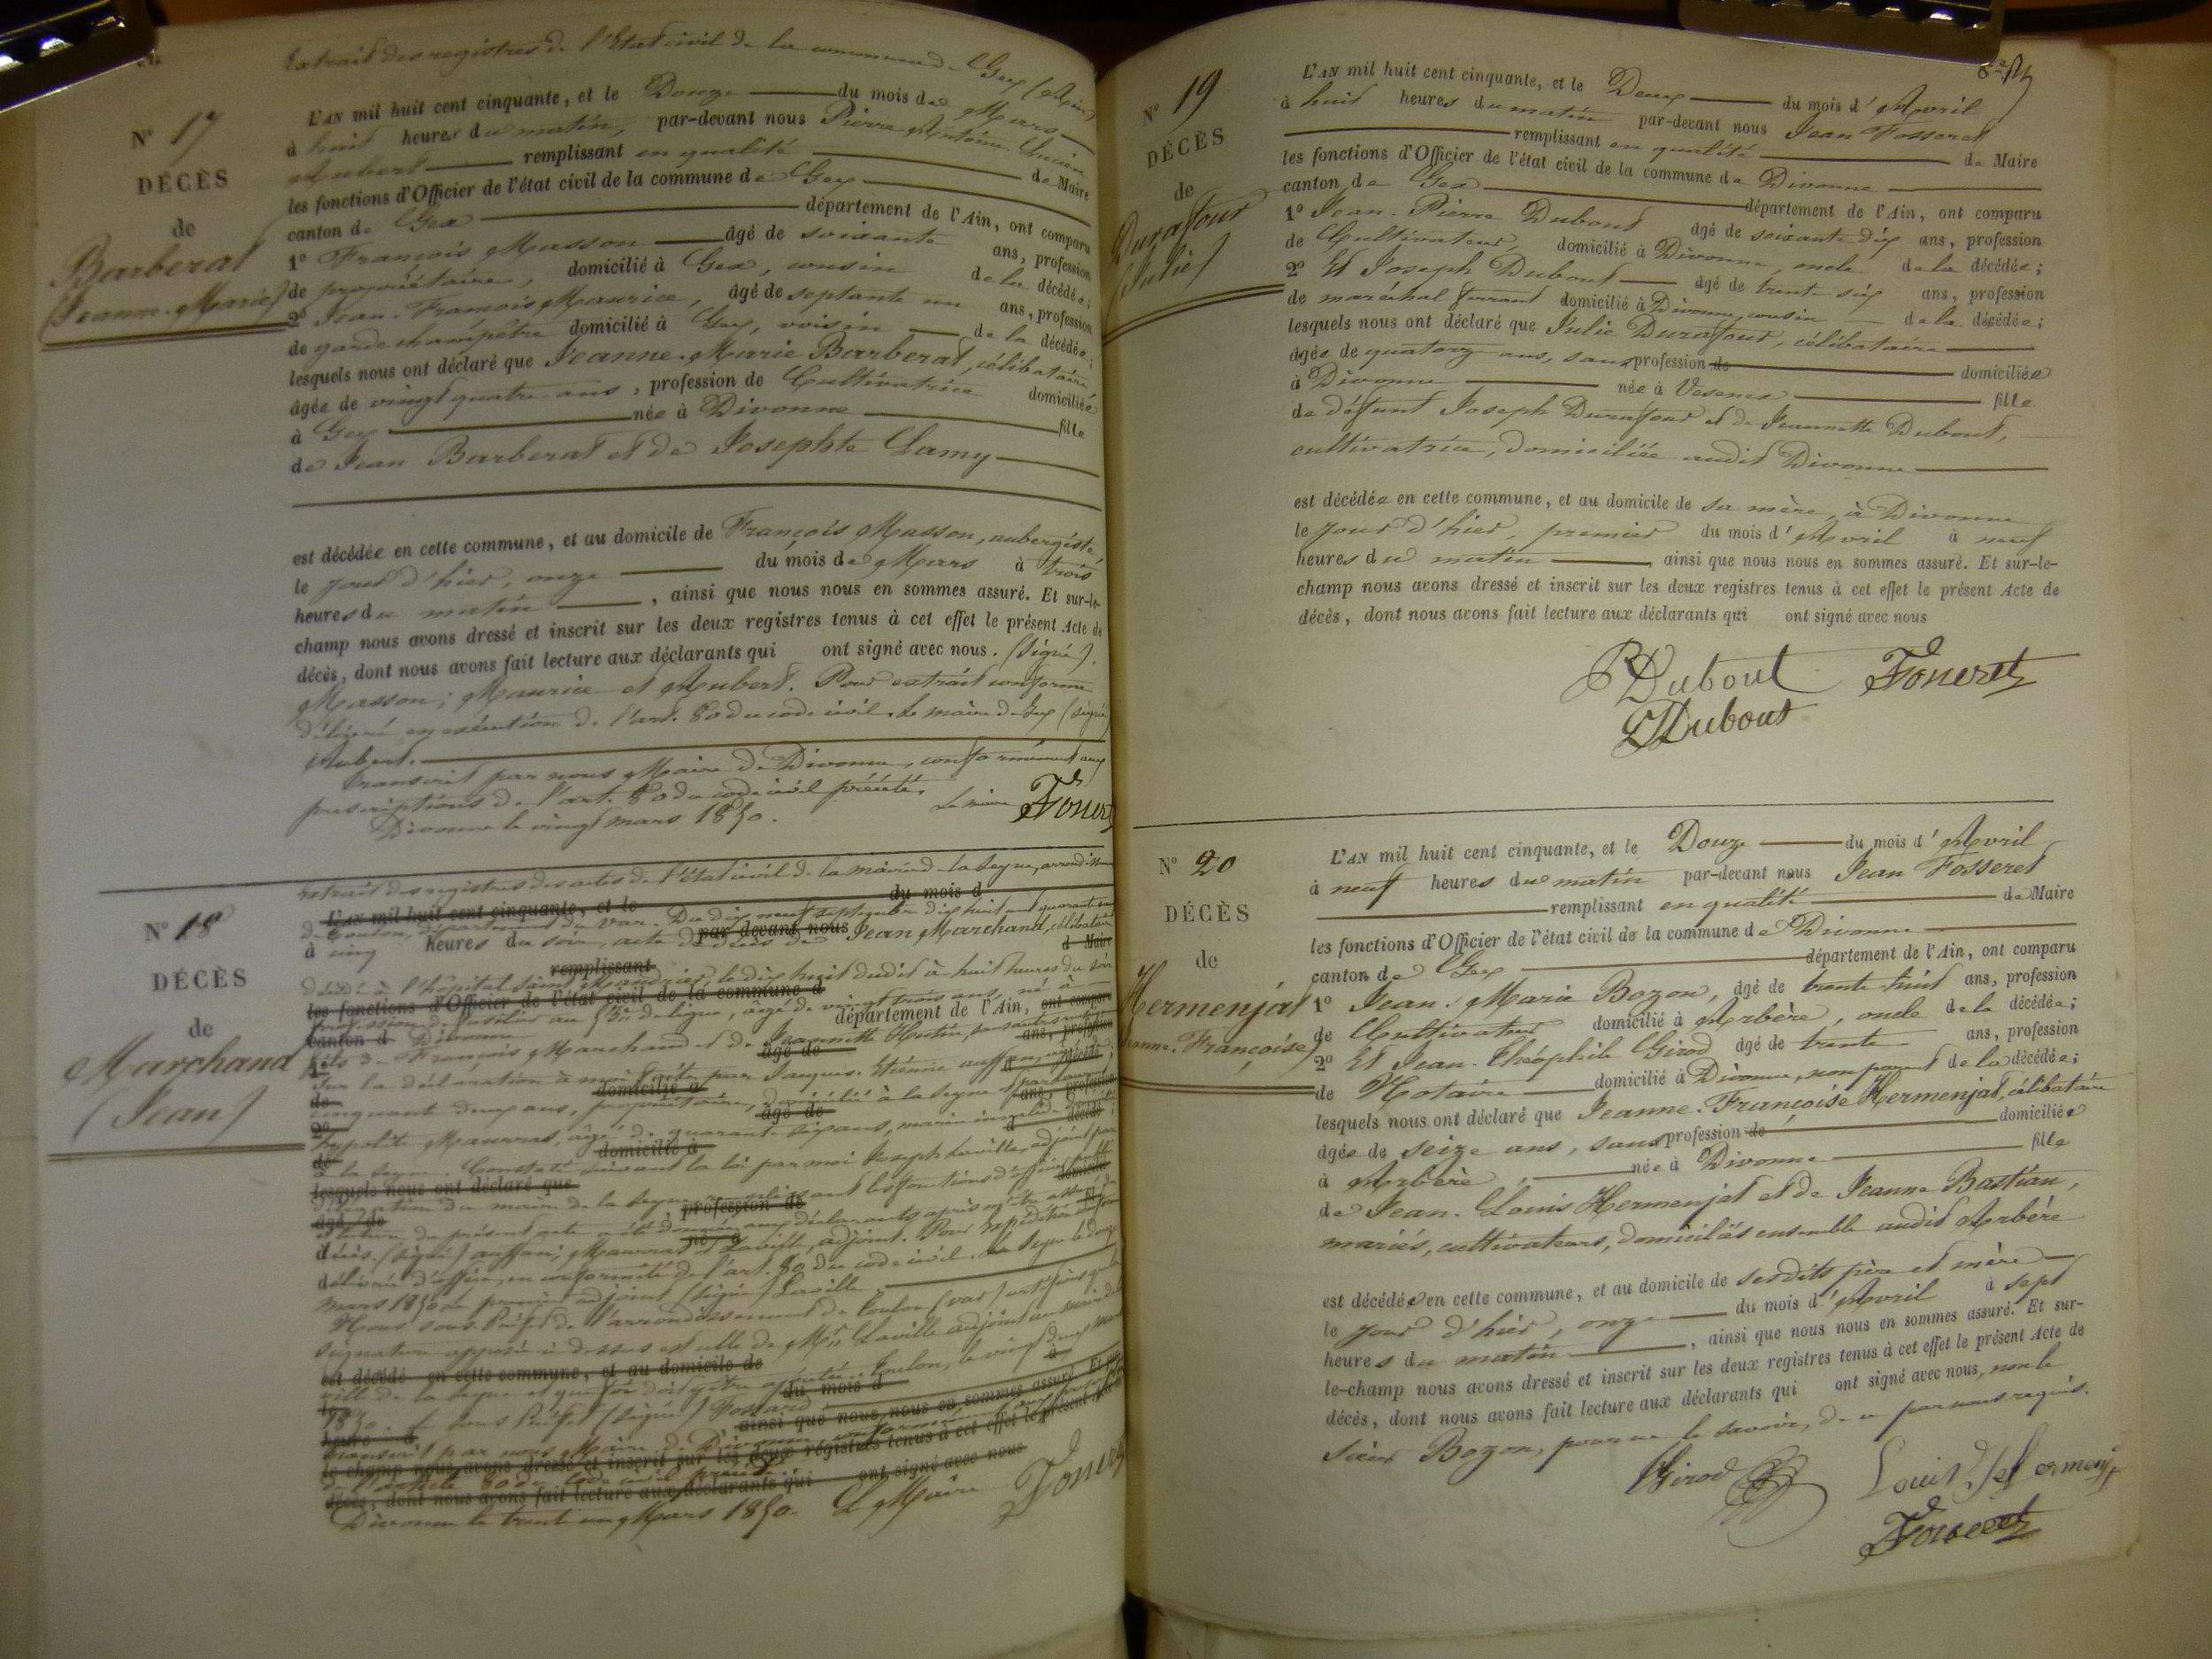 Extrait des registres de l'Etat civil de la commune de Gex (Ain)
N° 17
DÉCÈS
de
Barberat
(Jeanne-Marie)
L'AN mil huit cent cinquante, et le Douze du mois de Mars
à huit heures du matin, par-devant nous Pierre Antoine Lucien
Aubert remplissant en qualité de Maire
les fonctions d'Officier de l'état civil de la commune de Gex
canton de Gex département de l'Ain, ont comparu
1° François Masson âgé de soixante ans, profession
de propriétaire, domicilié à Gex, cousin de la décédée;
2° Jean-François Maurice, âgé de septante un ans, profession
de garde champêtre domicilié à Gex, voisin de la décédée;
lesquels nous ont déclaré que Jeanne-Marie Barberat, célibataire
âgée de vingt quatre ans, profession de Cultivatrice domiciliée
à Gex née à Divonne fille
de Jean Barberat et de Josephte Lamy
est décédée en cette commune, et au domicile de François Masson, aubergiste,
le jour d'hier, onze du mois de Mars à trois
heures du matin, ainsi que nous nous en sommes assuré. Et sur-le-
champ nous avons dressé et inscrit sur les deux registres tenus à cet effet le présent Acte de
décès, dont nous avons fait lecture aux déclarants qui ont signé avec nous. (Signé).
Masson; Maurice et Aubert. Pour extrait conforme
délivré en exécution de l'art. 80 du code civil. Le maire de Gex (signé)
Aubert.
Transcrit par nous Maire de Divonne, conformément aux
prescriptions de l'art. 80 du code civil précité.
Divonne le vingt mars 1850. Le maire
N° 18
DÉCÈS
de
Marchand
(Jean)
extrait des registres des actes de l'état civil de la mairie de la Seyne, arrondissement
L'AN mil huit cent cinquante, et le du mois d
de Toulon, département du Var. Du dix neuf septembre dix huit cent quarante
à cinq heures du soir, acte de décès de Jean Marchand, célibataire
par devant nous
remplissant d Maire
décédé à l'hôpital Saint Mandrier, le dix huit dudit à huit heures du soir
les fonctions d'Officier de l'état civil de la commune d
profession de fusilier au de ligne, âgé de vingt trois ans, né à
canton d Divonne département de l'Ain, ont comparu
fils de François Marchand et de Jeannette
âgé de ans, profession
Sur la déclaration à moi faite par Jacques-Etienne
domicilié à d décédé;
cinquante deux ans, propriétaire, domicilié à la Seyne et par
âgé de ans, profession
hyppolite Maurras, âgé de quarante six ans, marin
domicilié à d décédé;
à la Seyne. Constaté suivant la loi par moi Joseph Laville, adjoint par
lesquels nous ont déclaré que
délégation du maire de la Seyne remplissant les fonctions d'officier public
âgé de profession de domicilié
lecture du présent acte a été donnée aux déclarants après
né à
décès. (signé) Maurras et Laville, adjoint. Pour expédition conforme
délivrée d'office, en conformité de l'art. 80 du code civil. La Seyne le douze
mars 1850 Le premier adjoint (signé) Laville
Nous sous-Préfet de l'arrondissement de Toulon (var) certifions que la
signature apposée ci-dessus est celle de Mr. Laville adjoint au maire de
est décédé en cette commune, et au domicile de
ville de la Seyne et que foi doit y être ajoutée. Toulon, le vingt deux mars
le du mois d à
1850. Le sous Préfet (signé)
heure d ainsi que nous nous en sommes assuré. Et sur-
Transcrit par nous Maire de Divonne, conformément aux
le-champ nous avons dressé et inscrit sur les deux registres tenus à cet effet le présent
de l'article 80 du Code civil précité.
décès, dont nous avons fait lecture aux déclarants qui ont signé avec nous
Divonne le trente un Mars 1850. Le Maire
N° 19
DÉCÈS
de
Durafour
(Julie)
L'AN mil huit cent cinquante, et le Deux du mois d'Avril
à huit heures du matin par-devant nous Jean Fosseret
remplissant en qualité de Maire
les fonctions d'Officier de l'état civil de la commune de Divonne
canton de Gex département de l'Ain, ont comparu
1° Jean-Pierre Dubout âgé de soixante-dix ans, profession
de Cultivateur, domicilié à Divonne, oncle de la décédée;
2° Et Joseph Dubout âgé de trente six ans, profession
de maréchal ferrant domicilié à Divonne, cousin de la décédée;
lesquels nous ont déclaré que Julie Durafour, célibataire
âgée de quatorze ans, sans profession de domiciliée
à Divonne née à Vesenex fille
de défunt Joseph Durafour et de Jeannette Dubout,
cultivatrice, domiciliée audit Divonne
est décédée en cette commune, et au domicile de sa mère, à Divonne
le jour d'hier, premier du mois d'Avril à neuf
heures du matin, ainsi que nous nous en sommes assuré. Et sur-le-
champ nous avons dressé et inscrit sur les deux registres tenus à cet effet le présent Acte de
décès, dont nous avons fait lecture aux déclarants qui ont signé avec nous
Dubout
Dubout
N° 20
DÉCÈS
de
Hermenjat
(Jeanne-Françoise)
L'AN mil huit cent cinquante, et le Douze du mois d'Avril
à neuf heures du matin par-devant nous Jean Fosseret
remplissant en qualité de Maire
les fonctions d'Officier de l'état civil de la commune de Divonne
canton de Gex département de l'Ain, ont comparu
1° Jean-Marie Bozon, âgé de trente huit ans, profession
de Cultivateur domicilié à Arbère, oncle de la décédée;
2° Et Jean-Théophile Girod âgé de trente ans, profession
de Notaire domicilié à Divonne, non parent de la décédée;
lesquels nous ont déclaré que Jeanne-Françoise Hermenjat, célibataire
âgée de seize ans, sans profession de domiciliée
à Arbère, née à Divonne fille
de Jean-Louis Hermenjat et de Jeanne Bastian,
mariés, cultivateurs, domiciliés ensemble audit Arbère
est décédée en cette commune, et au domicile de sesdits père et mère
le jour d'hier, onze du mois d'Avril à sept
heures du matin, ainsi que nous nous en sommes assuré. Et sur-
le-champ nous avons dressé et inscrit sur les deux registres tenus à cet effet le présent Acte de
décès, dont nous avons fait lecture aux déclarants qui ont signé avec nous, non le
sieur Bozon, pour ne le savoir, de ce par nous requis.
Girod Louis Hermenja